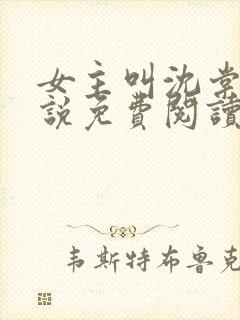 女主叫沈棠
說免費閱讀
韦斯特布鲁克